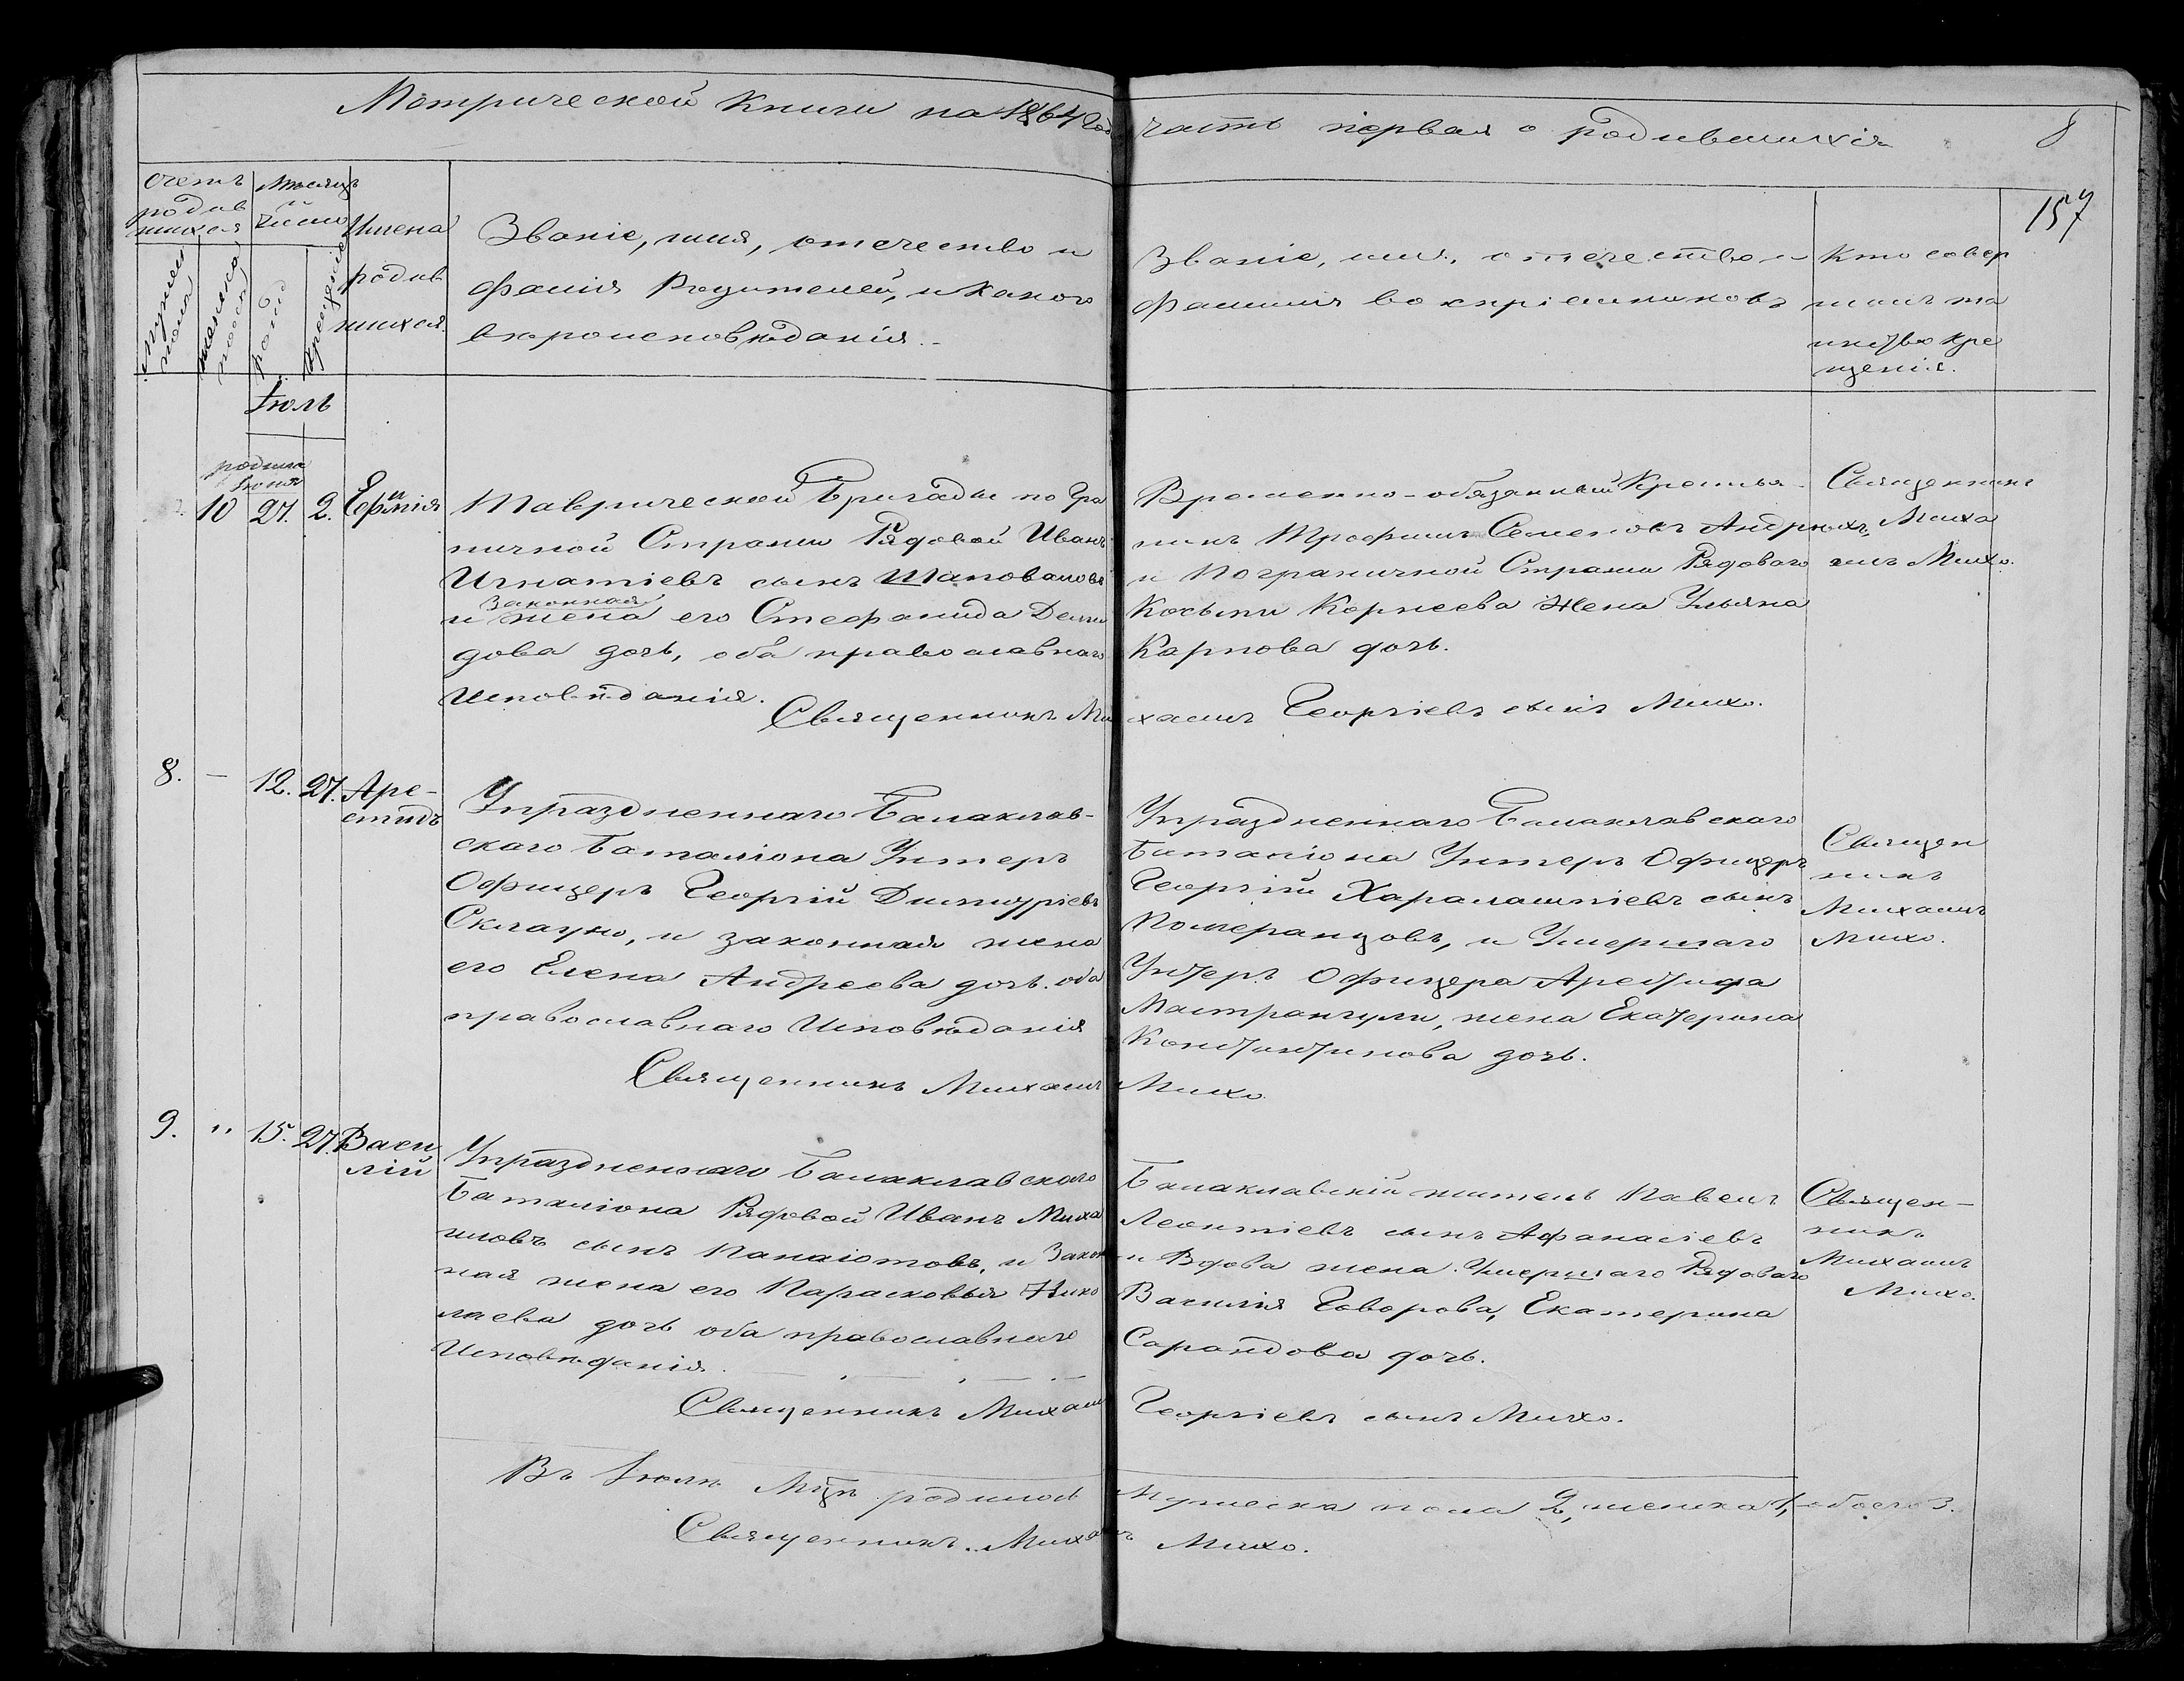 Метрической Книги на 1864 Год часть первая о родившихся 8
157
счетъ родив шихся
Мѣсяцъ и число
Имена родив шихся.
Мужеска пола
женска пола
рожд.
крещеніе
Званіе, имя, отечество и
фамилія Родителей, и какого
вероисповѣданія.
Званіе, имя, отечество и
фамилия воспріемниковъ
Кто совер
шилъ та
инство кре
щенія.
Іюль
родила
Іюня
10 27. 2. Ефимія
Таврической Бригады по Гра
ничной Стражи Рядовой Иванъ
Игнатіевъ сынъ Шаповаловъ
и законная жена его Стефанида Деми
дова дочь, оба православнаго
Исповѣданія.
Временно-обязанный Крестья
нинъ Трофимъ Семеновъ Андрюхъ,
и Пограничной Стражи Рядоваго
Косьмы Корнеева Жена Ульяна
Карпова дочь.
Священникъ
Миха
илъ Михо.
Священникъ Михаилъ Георгіевъ сынъ Михо.
8. — 12. 27. Аре-
стидъ
Упраздненнаго Балаклав-
скаго Баталіона Унтеръ
Офицеръ Георгій Димитріевъ
Склауно, и законная жена
его Елена Андреева дочь. оба
православнаго Исповѣданія
Упраздненнаго Балаклавскаго
Баталіона Унтеръ Офицеръ
Георгій Харалампіевъ сынъ
Померанцовъ, и Умершаго
Унтеръ Офицера Арестида
Мастрангули, жена Екатерина
Константинова дочь.
Священ
никъ
Михаилъ
Михо.
Священникъ Михаилъ Михо.
9. " 15. 27. Васи
лій
Упраздненнаго Балаклавскаго
Баталіона Рядовой Иванъ Миха
иловъ сынъ Панаіотовъ, и Закон
ная жена его Парасковья Нико
лаева дочь оба православнаго
Исповѣданія.
Балаклавскій житель Павелъ
Леонтіевъ сынъ Афанасіевъ
и Вдова жена Умершаго Рядоваго
Василія Говорова, Екатерина
Сарандова дочь.
Священ-
никъ
Михаилъ
Михо.
Священникъ Михаилъ Георгіевъ сынъ Михо.
Въ Іюлѣ Мцѣ родилось Мужеска пола 2, женска 1, обоего 3.
Священникъ Михаилъ Михо.